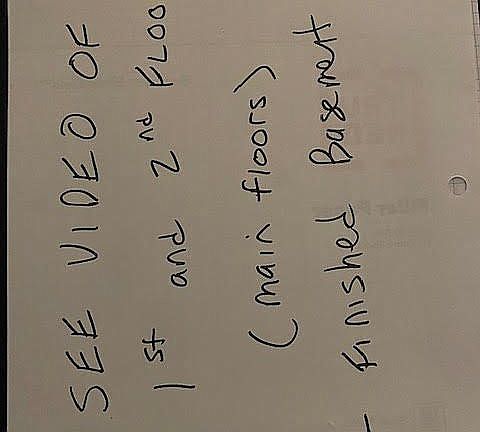 SEE VIDEO OF
1st and 2nd FLOO
(main floors)
- finished Basement